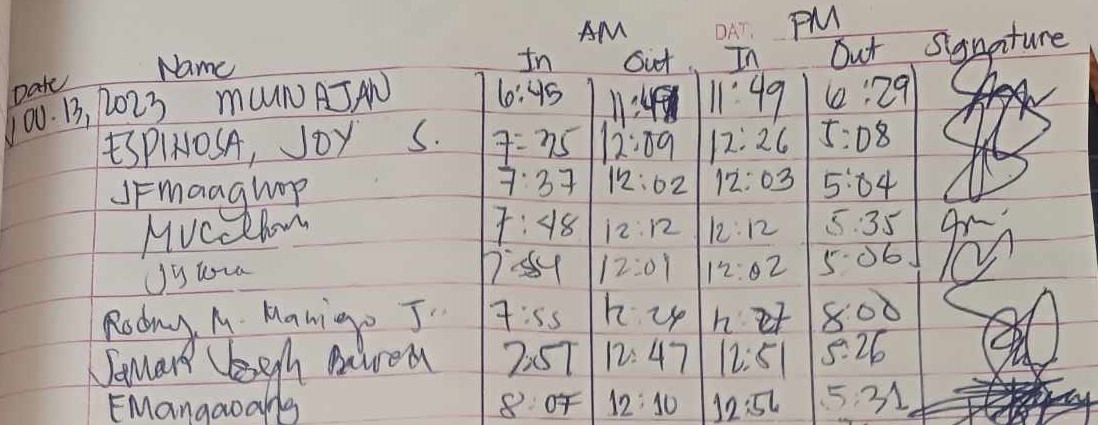 AM DAT. PM
Date Name In Out In Out Signature
13, 2023 MUNAJAN 6:45 11:49 11:49 6:29
ESPINOSA, JOY S. 7:25 12:09 12:26 5:08
JFmaaghop 7:37 12:02 12:03 5:04
7:48 12:12 12:12 5:35
12:01 12:02 5:06
Rodny M. Maniego Jr. 7:55 12:24 12:27 8:00
Joseph 7:57 12:47 12:51 5:26
EMangaoang 8:07 12:10 12:56 5:31